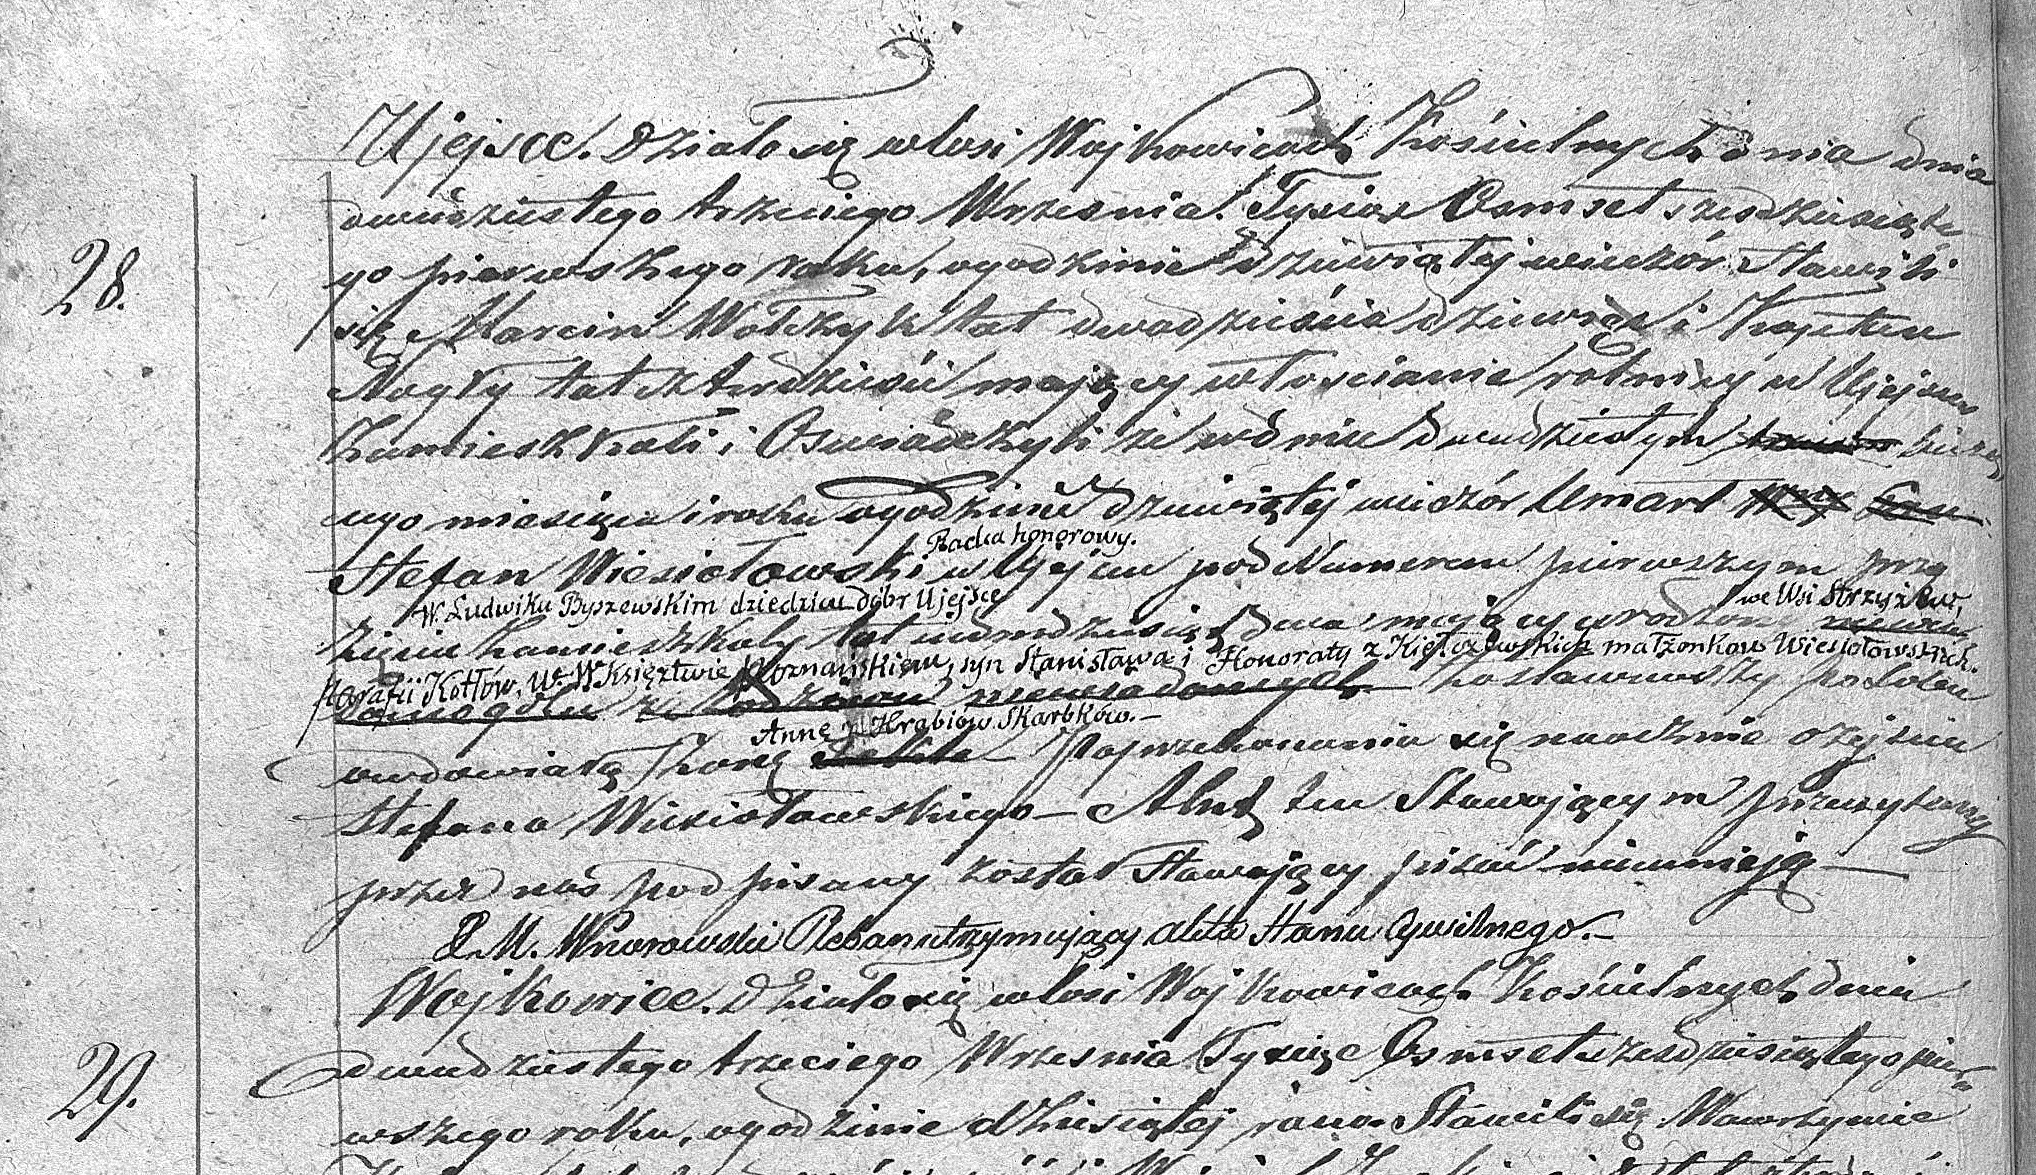 Ujejsce. Działo się w Wsi Wojkowicach Kościelnych dnia dnia
dwudziestego trzeciego Września. Tysiąc Osmset szesdziesiąte
28.
go pierwszego roku, o godzinie dziewiątej wieczór Stawili
się Marcin Wołczyk lat dwadzieścia dziewięć i Kajetan
Nagły lat czterdzieści mający włościanie rolnicy w Ujejscu
Zamieszkali i Oswiadczyli że w dniu dwudziestym bieżą
cego miesiąca i roku o godzinie dziewiątej wieczór Umarł
Radca honorowy.
Stefan Wiesiołowski w Ujejscu pod Numerem pierwszym przy
W. Ludwiku Byszewskim dziedzicu dóbr Ujejsce we Wsi Strzyżew,
zięciu zamieszkały lat dwa mający urodzony
Parafii Kotłów, W. W. Księztwie Poznańskiem, syn Stanisława i Honoraty z Kiełczewskich małżonków Wiesiołowskich.
Zostawiwszy po sobie
Annę z Hrabiów Skarbków.—
owdowiałą Żonę Po przekonaniu się naocznie o zejściu
Stefana Wiesiołowskiego— Akt ten Stawającym przeczytany
przez nas podpisany został Stawający pisać nieumieją—
X. M. Wnorowski Pleban utrzymujący Akta Stanu Cywilnego.—
Wojkowice. Działo się w Wsi Wojkowicach Kościelnych dnia
29.
dwudziestego trzeciego Września Tysiąc Osmset szesdziesiątego pier-
wszego roku, o godzinie dziesiątej rano. Stawili się Wawrzyniec